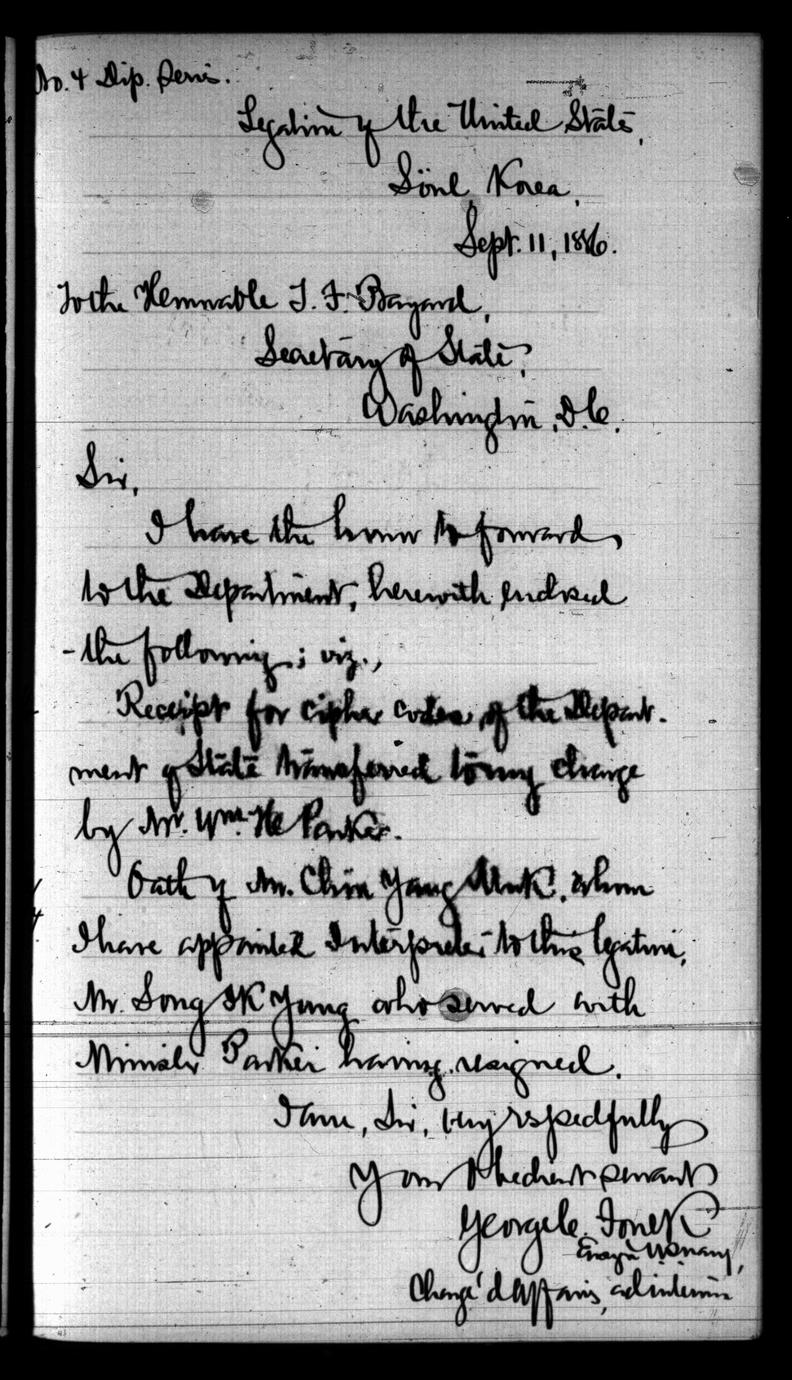 No. 4 Dip. Series.
Legation of the United States,
Söul, Korea,
Sept. 11, 1886.
To the Honorable T. F. Bayard,
Secretary of State,
Washington, D.C.
Sir,
I have the honor to forward
to the Department, herewith enclosed
- the following; viz.,
Receipt for cipher codes of the Depart-
ment of State transferred to my charge
by Mr. Wm. H. Parker.
Oath of Mr. Chin Yang Muk, whom
I have appointed Interpreter to this legation,
Mr. Song IK Yung who served with
Minister Parker having resigned.
I am, Sir, very respectfully
Your obedient servant
George C. Foulk
Ensign U.S. Navy,
Chargé d'Affaires, ad interim